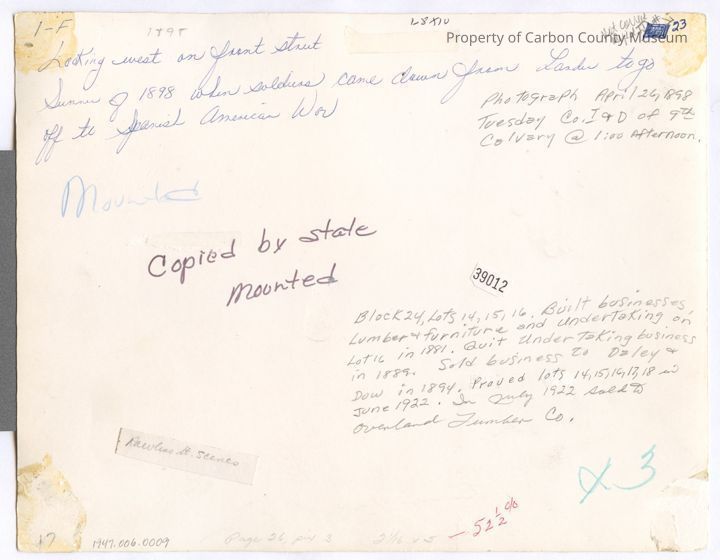 1-F
1898
LSXIV
23
Property of Carbon County Museum
Looking west on front street
Summer of 1898 when soldiers came down from Lander to go
off to Spanish American War
Photograph April 26, 1898
Tuesday Co. I & D of 9th
Calvary @ 1:00 Afternoon.
Mounted
Copied by state
mounted
39012
Block 24, Lots 14, 15, 16. Built businesses,
Lumber & furniture and undertaking on
Lot 16 in 1881. Quit Undertaking business
in 1889. Sold business to Daley &
Dow in 1894. Proved lots 14, 15, 16, 17, 18 in
June 1922. In July 1922 sold to
Overland Lumber Co.
Rawlins St. Scenes
X3
17
1947.006.0009
Page 26, pix 3
- 52 1/2 %